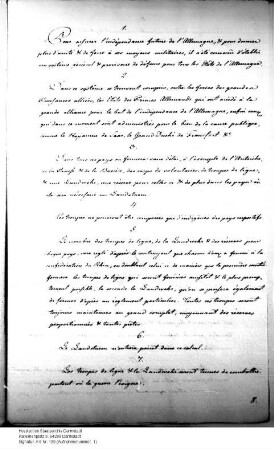 1.
Pour assurer l'indépendance future de l'Allemagne, & pour donner
plus d'unité & de force à ses moyens militaires, il a été convenu d'établir
un système général & permanent de défense pour tous les États de l'Allemagne.
2.
Dans ce système se trouvent compris, outre les forces des grandes
Puissances alliées, les États des Princes Allemands qui ont accédé à la
grande alliance pour le but de l'indépendance de l'Allemagne, enfin ceux
qui dans ce moment sont administrés pour le bien de la cause publique,
comme le Royaume de Saxe, le Grand Duché de Francfort &c.
3.
Dans tous ces pays on formera sans délai, à l'exemple de l'Autriche,
de la Prusse & de la Bavière, des corps de volontaires, de troupes de ligne,
une Landwehr, une réserve pour celles ci & de plus dans les pays où
un Landsturm.
4.
Les troupes ne pourront être composées que d'indigènes des pays respectifs
5.
Le nombre des troupes de ligne, de la Landwehr & des réserves pour
chaque pays, sera réglé d'après le contingent que chacun d'eux a fourni à la
confédération du Rhin, en doublant celui-ci de manière que la première moitié
formera les troupes de ligne qui seront fournies aussitôt & le plus
possible, la seconde la Landwehr, qu'on se propose également
de former d'après un règlement particulier. Toutes ces troupes seront
toujours maintenues au grand complet, moyennant des réserves
proportionnées & toutes prêtes.
6.
Le Landsturm n'entrera point dans ce calcul.
7.
Les troupes de ligne & la Landwehr seront tenues de combattre
partout où la guerre l'exigera.
8.
Hessisches Staatsarchiv Darmstadt